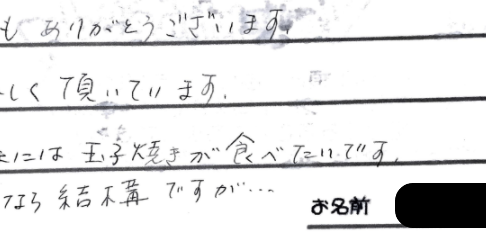 も ありがとうございます。
しく頂いています.
には 玉子焼きが食べたいです.
なら結構ですが…
お名前